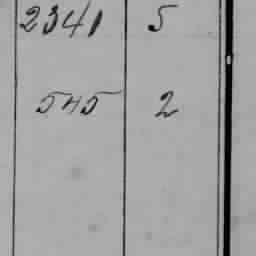 2341 5
545 2